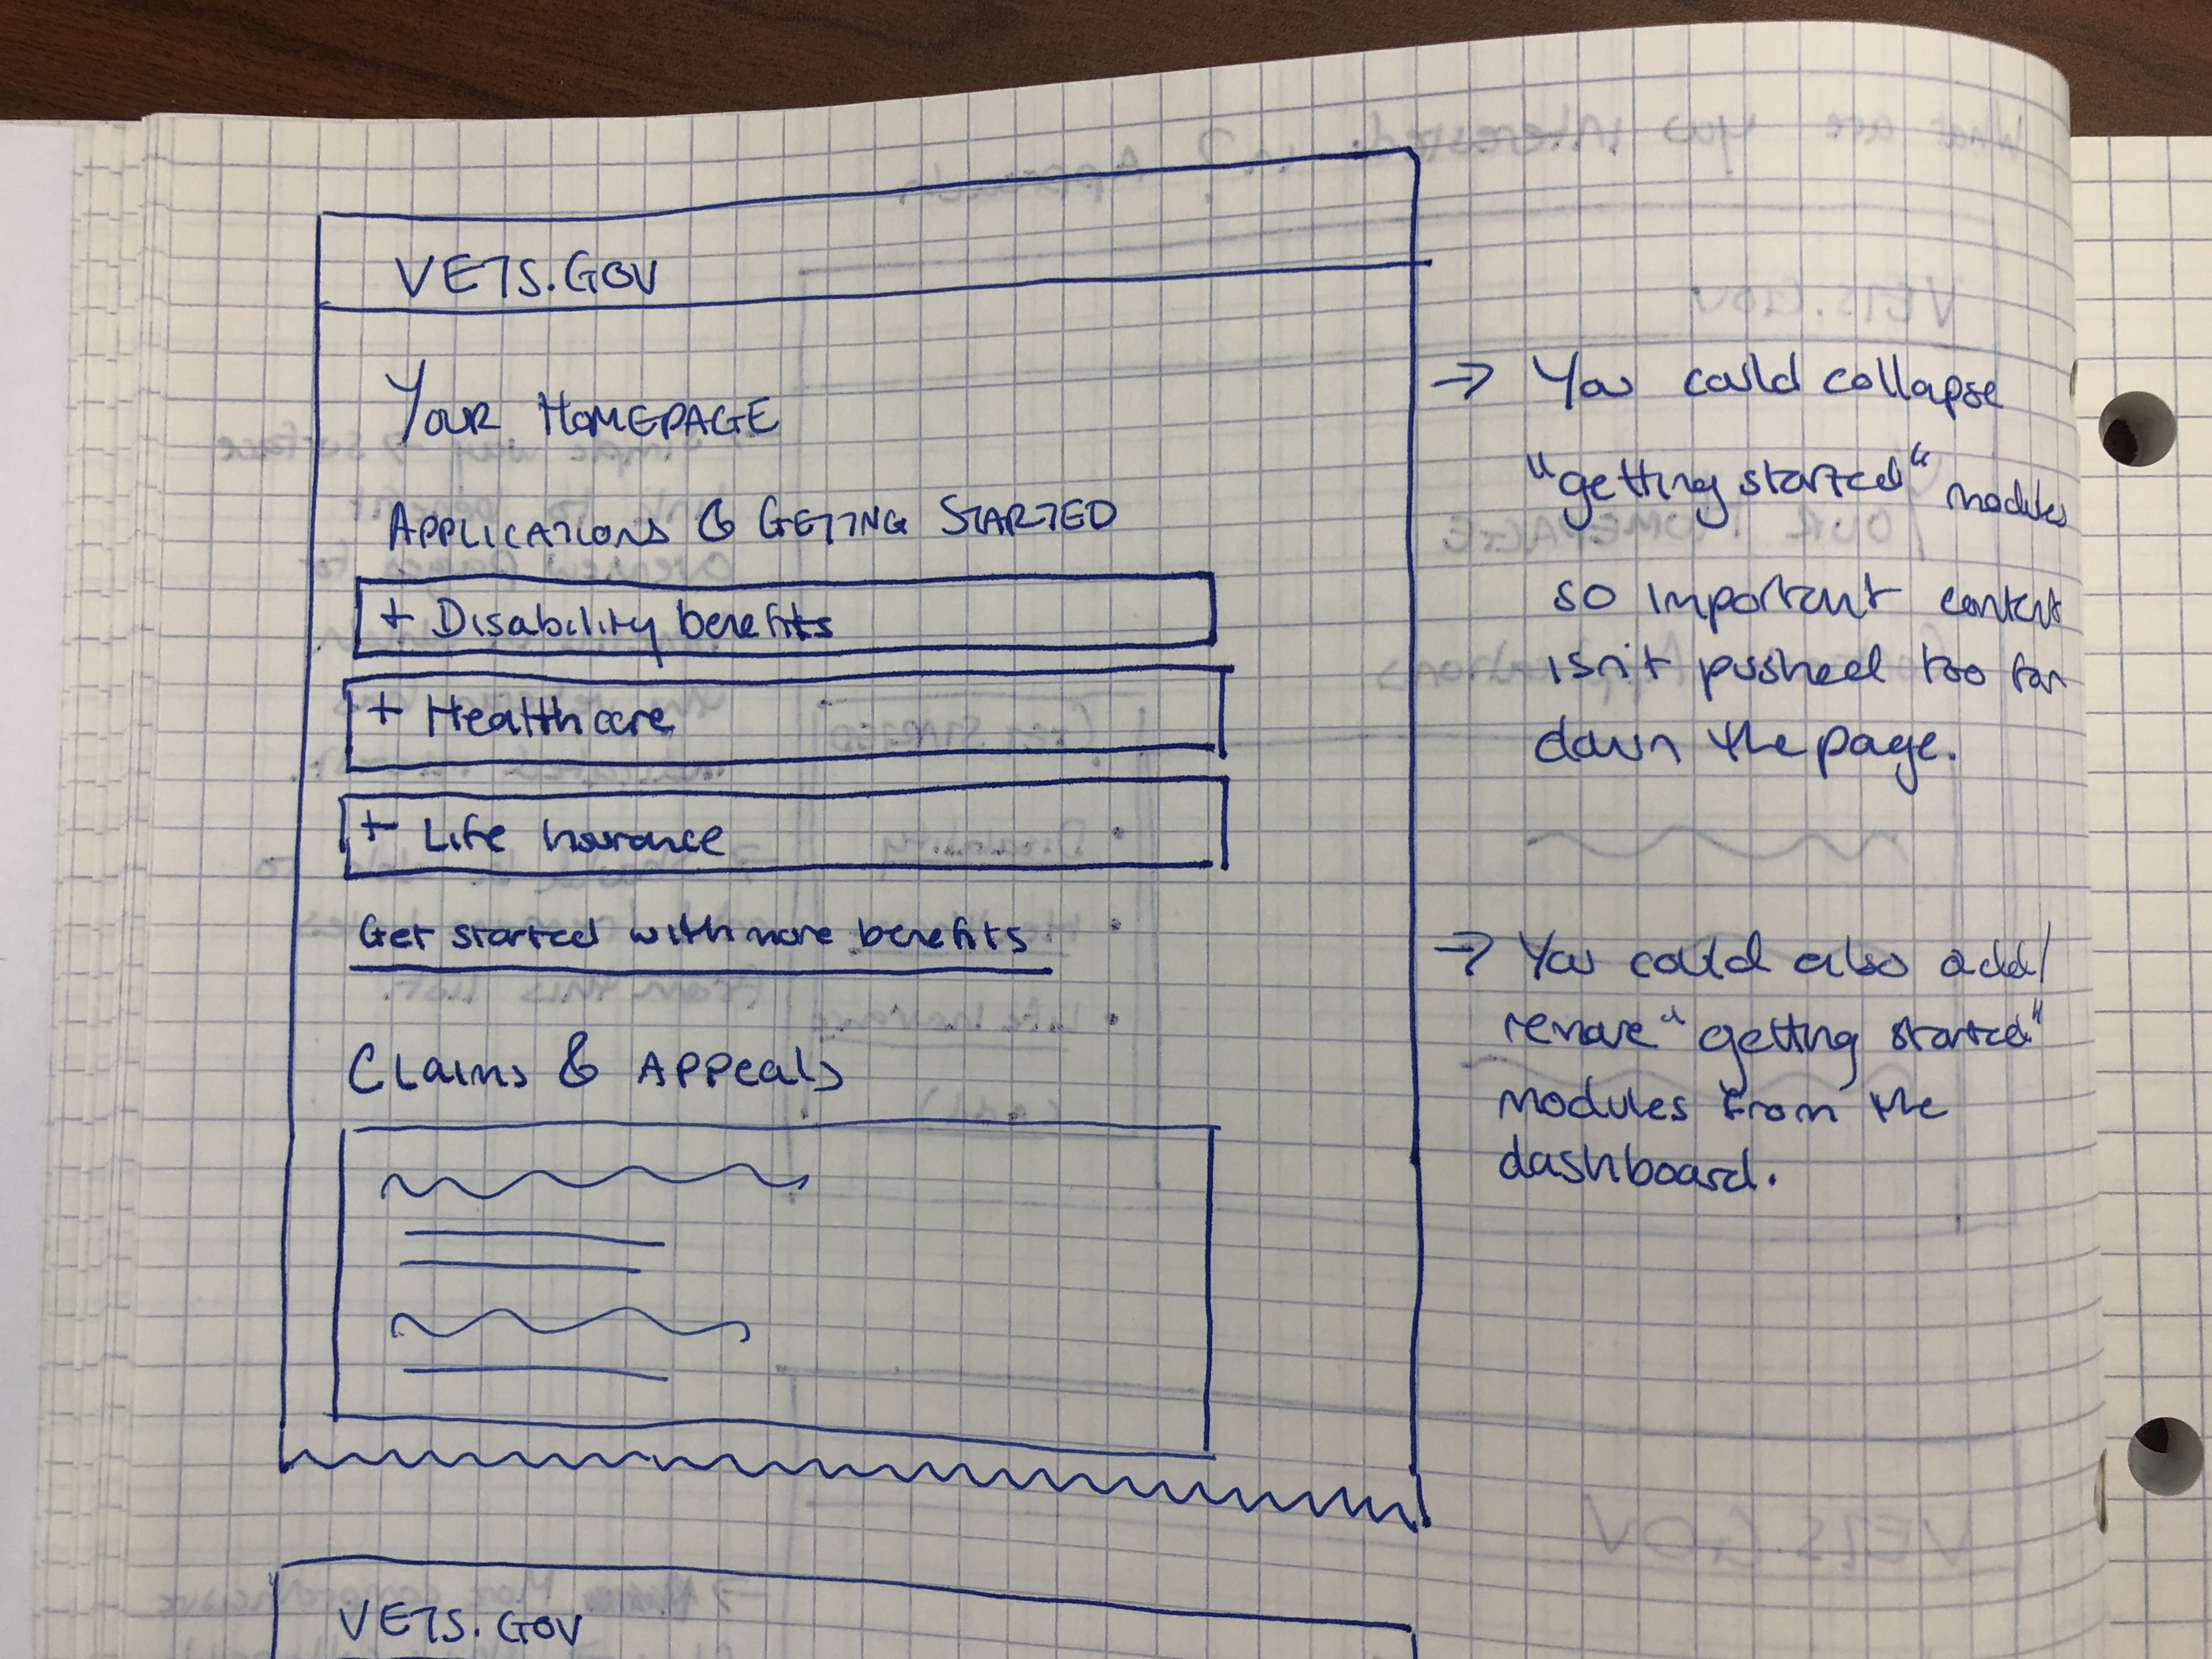 VETS.GOV
YOUR HOMEPAGE
APPLICATIONS & GETTING STARTED
+ Disability benefits
+ Healthcare
+ Life Insurance
Get started with more benefits
Claims & Appeals
VETS.GOV
→ You could collapse
"getting started" modules
so important content
isn't pushed too far
down the page.
→ You could also add/
remove "getting started"
modules from the
dashboard.